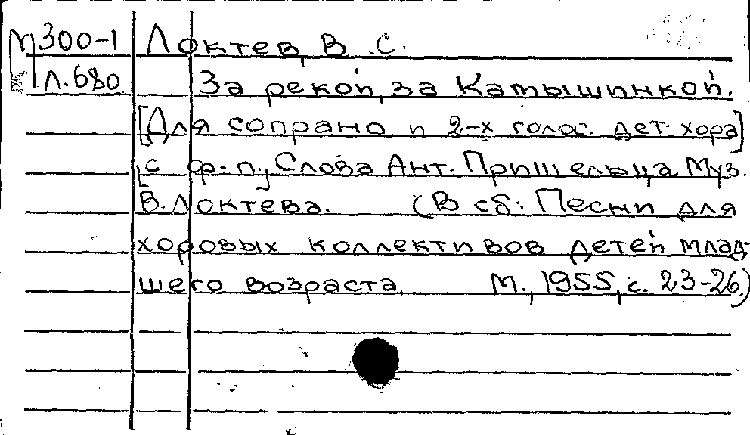 М300-1 Локтев, В. С.
Л.680 За рекой, за Камышинкой.
[Для сопрано и 2-х голос. дет. хора]
с ф.-п., Слова Ант. Пришельца. Муз.
В. Локтева. (В сб: Песни для
хоровых коллективов детей млад-
шего возраста. М., 1955, с. 23-26)